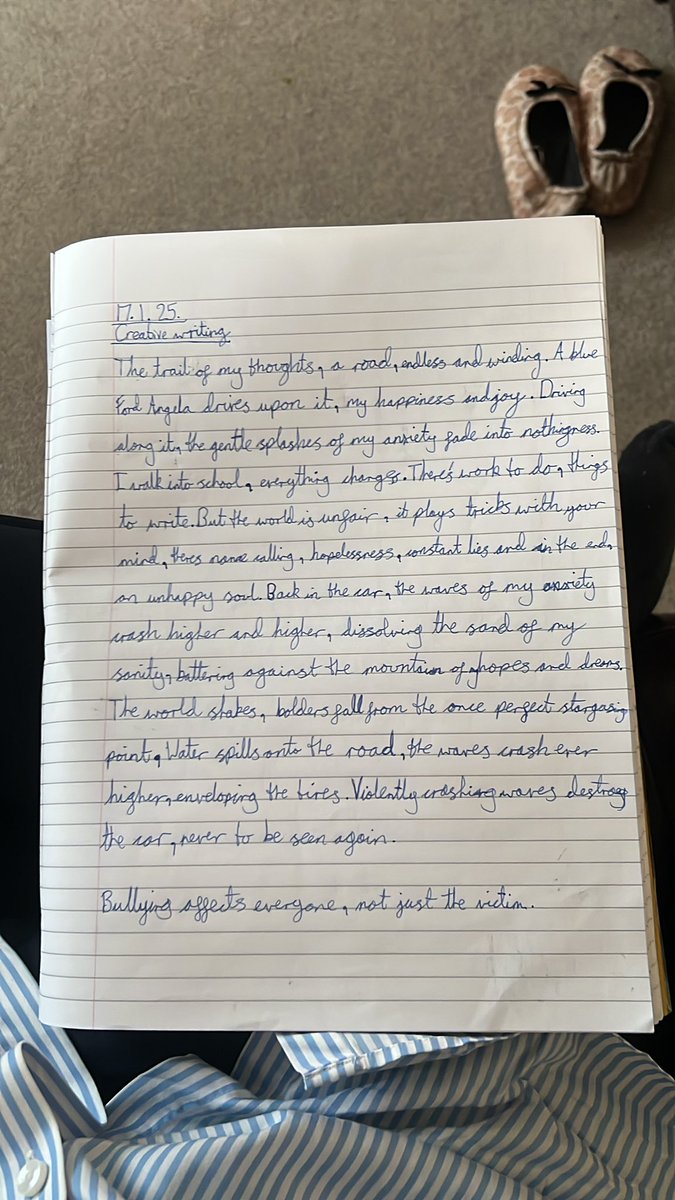 17.1.25.
Creative writing
The trail of my thoughts, a road, endless and winding. A blue
Ford Angela drives upon it, my happiness and joy. Driving
along it, the gentle splashes of my anxiety fade into nothingness.
I walk into school, everything changes. There's work to do, things
to write. But the world is unfair, it plays tricks with your
mind, theres name calling, hopelessness, constant lies and in the end,
an unhappy soul. Back in the car, the waves of my anxiety
crash higher and higher, dissolving the sand of my
sanity, battering against the mountain of hopes and dreams.
The world shakes, bolders fall from the once perfect stargasing
point, Water spills onto the road, the waves crash ever
higher, enveloping the tires. Violently crashing waves destroy
the car, never to be seen again.
Bullying affects everyone, not just the victim.